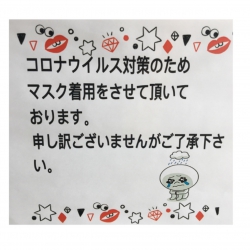 コロナウイルス対策のため
マスク着用をさせて頂いて
おります。
申し訳ございませんがご了承下さ
い。